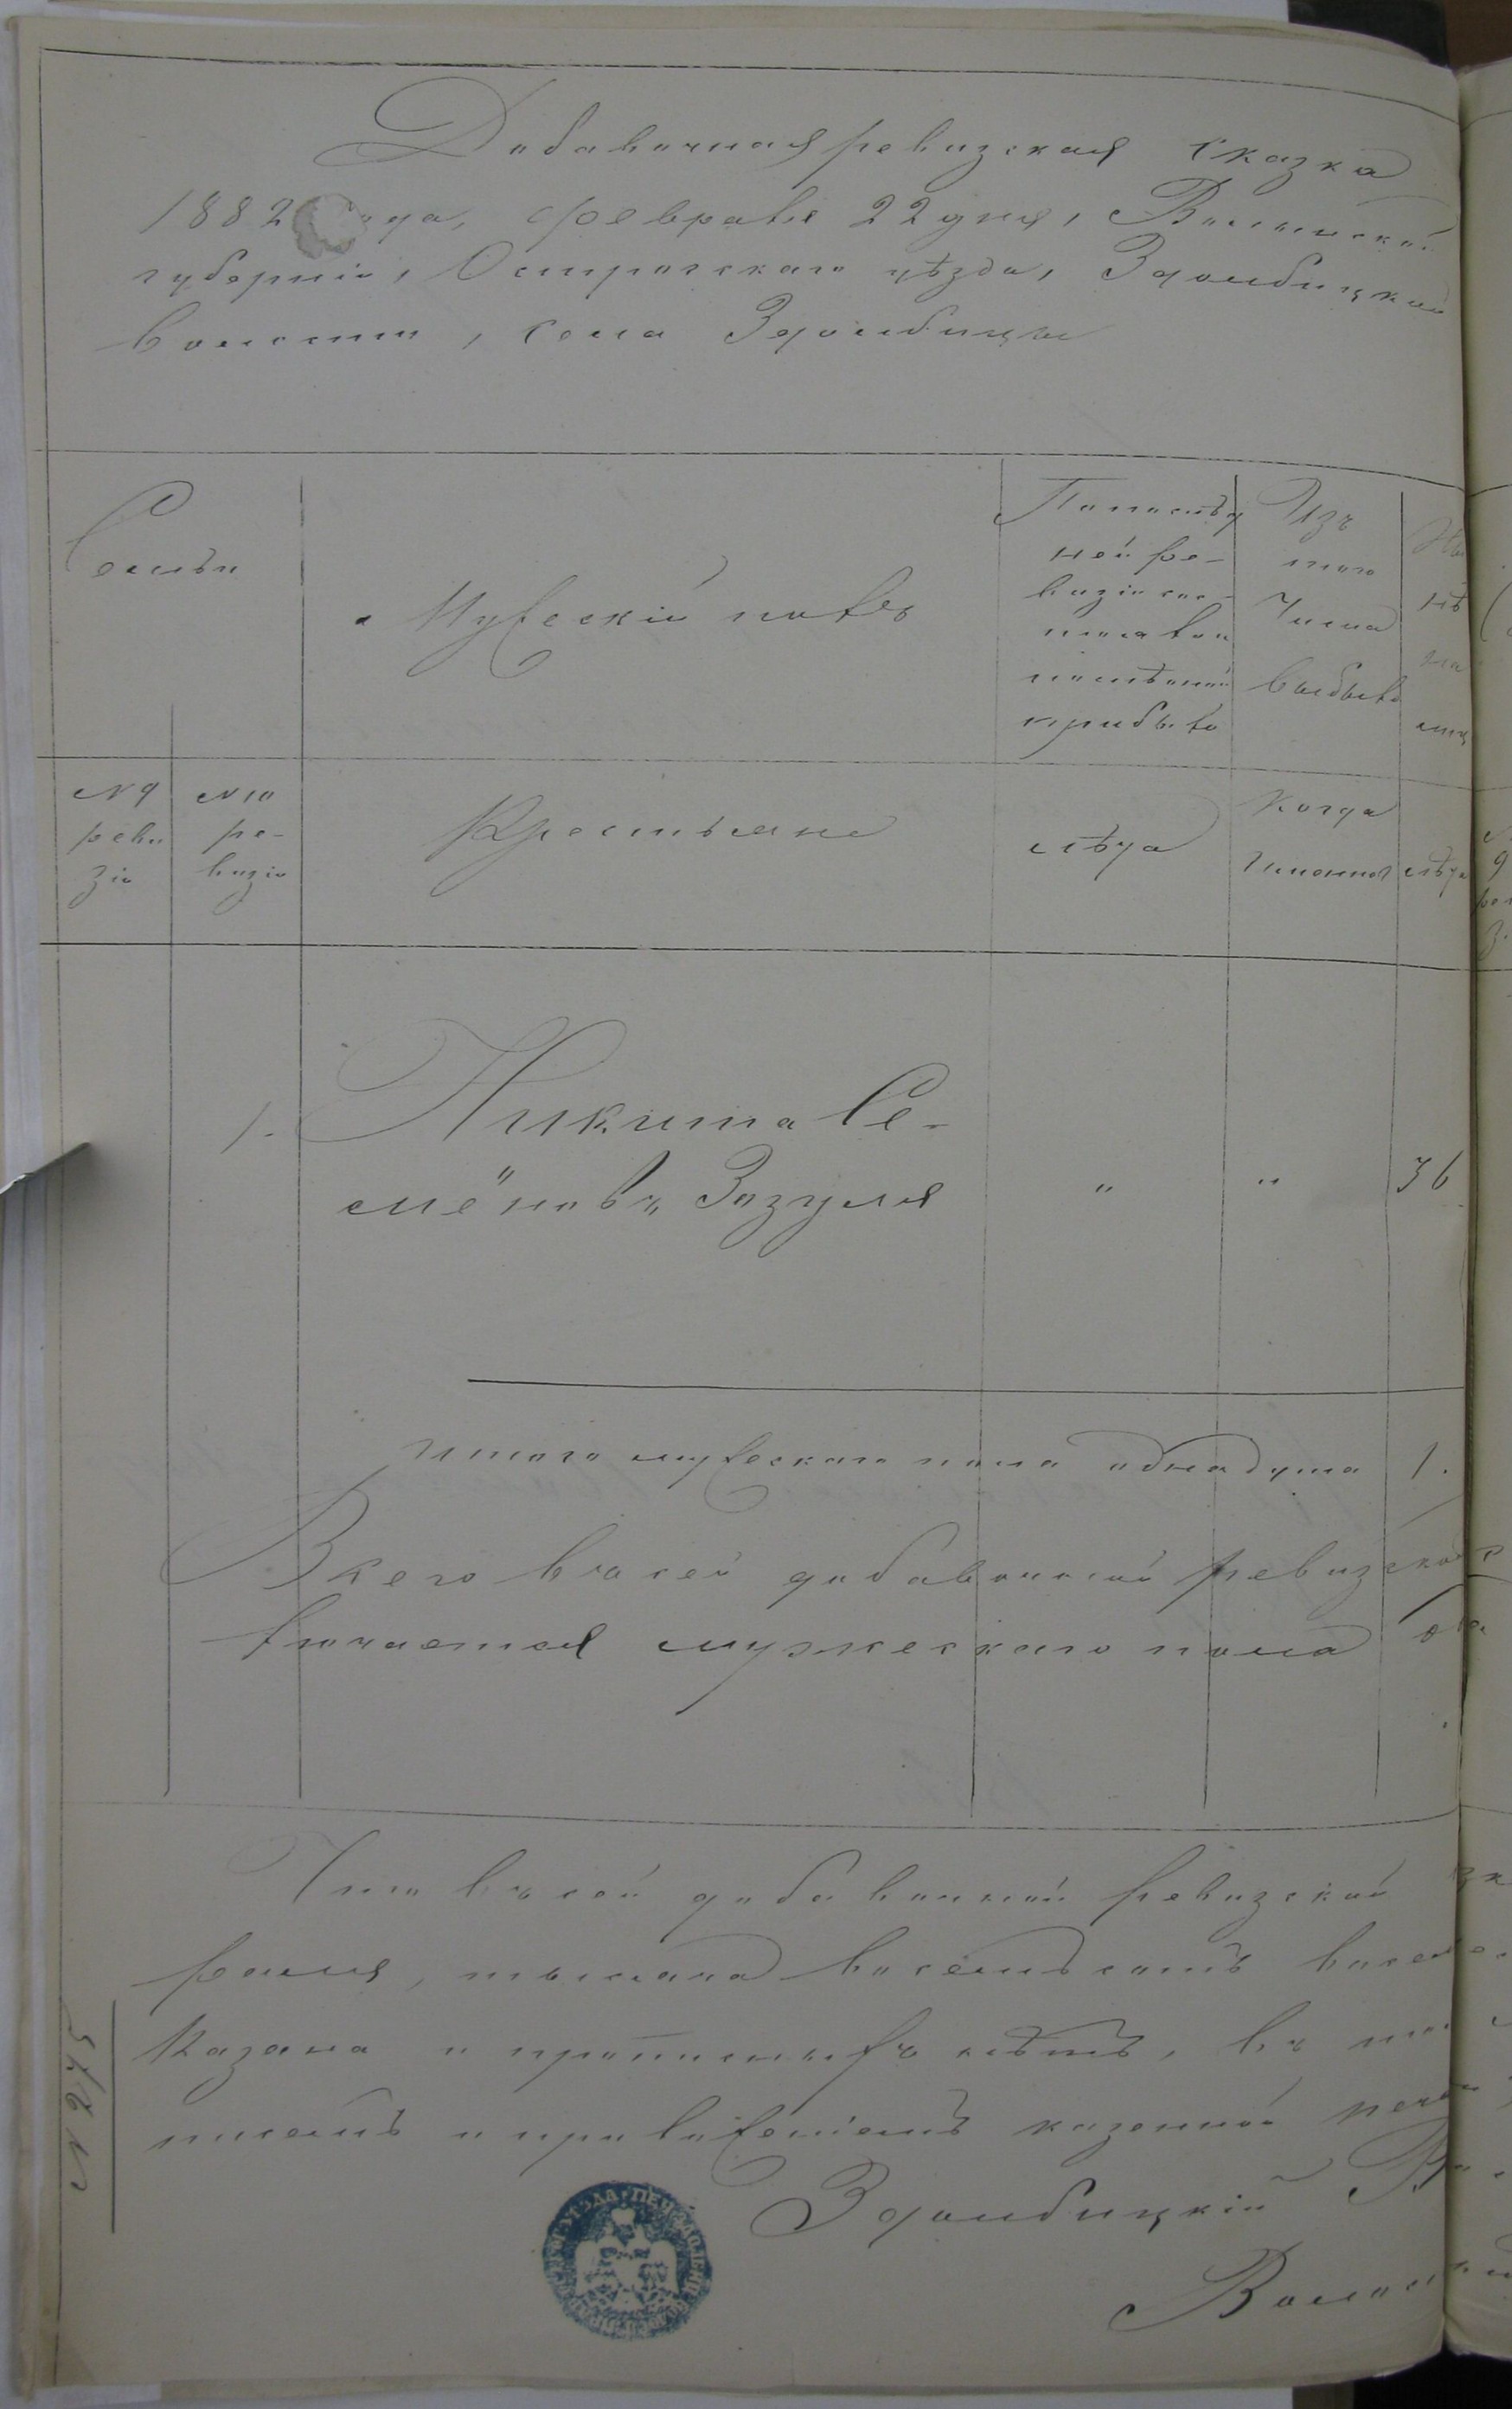 Добавочная ревизская сказка
1882 года, февраля 22 дня, Волынской
губерніи, Острожскаго уѣзда, Здолбицкой
волости, села Здолбицы
Семьи
Мужескій полъ
По послѣд
ней ре-
визіи сос-
тояло и
прибыло
Изъ
того
числа
выбыло
Ны
нѣ
на
лиц
№ 9
реви
зіи
№ 10
ре-
визіи
Крестьяне
лѣта
когда
именно
лѣта
1.
Никита Се-
мёновъ Зазуля
"
"
36
Итого мужескаго пола одна душа 1.
Всего въ сей добавочной ревизской
лючается мужескаго пола
Что въ сей добавочной ревизской
раля, тысяча восемьсотъ восем
казана и противныхъ лѣтъ, въ
писемъ и приложеніемъ казенной печа
Здолбицкій В
Волост